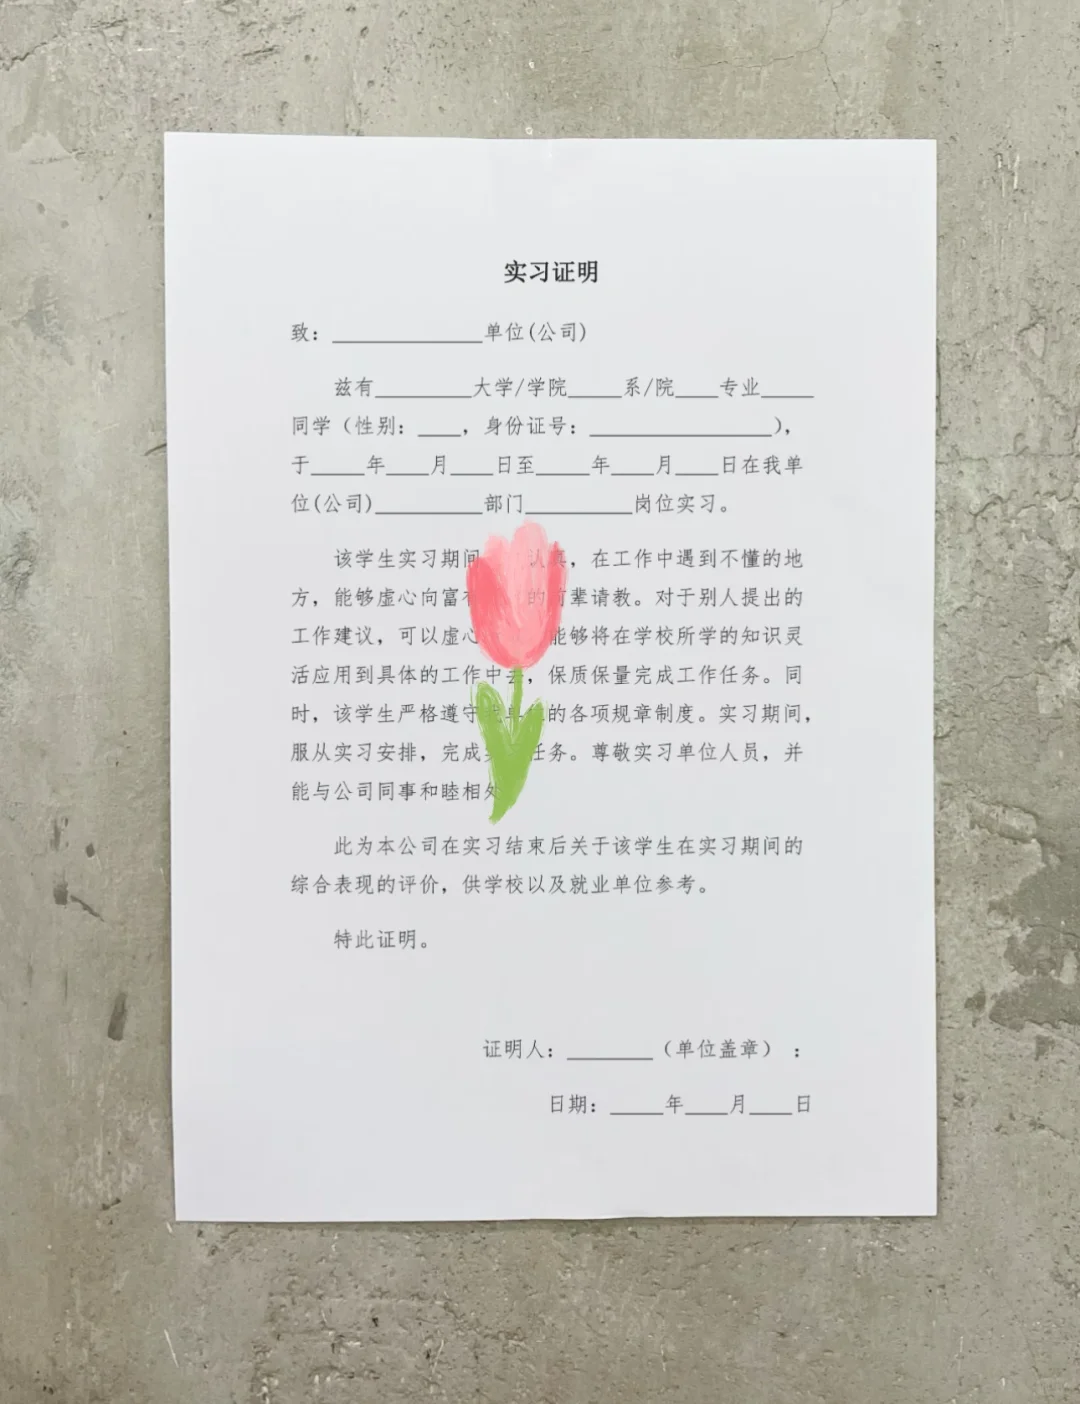 实习证明
致：______________单位(公司)
兹有_________大学/学院_____系/院____专业_____
同学（性别：____，身份证号：_________________），
于_____年____月____日至_____年____月____日在我单
位(公司)__________部门__________岗位实习。
该学生实习期间 认真，在工作中遇到不懂的地
方，能够虚心向富有 的前辈请教。对于别人提出的
工作建议，可以虚心 能够将在学校所学的知识灵
活应用到具体的工作中去，保质保量完成工作任务。同
时，该学生严格遵守我单位的各项规章制度。实习期间，
服从实习安排，完成实 任务。尊敬实习单位人员，并
能与公司同事和睦相处
此为本公司在实习结束后关于该学生在实习期间的
综合表现的评价，供学校以及就业单位参考。
特此证明。
证明人：________（单位盖章）：
日期：_____年____月____日